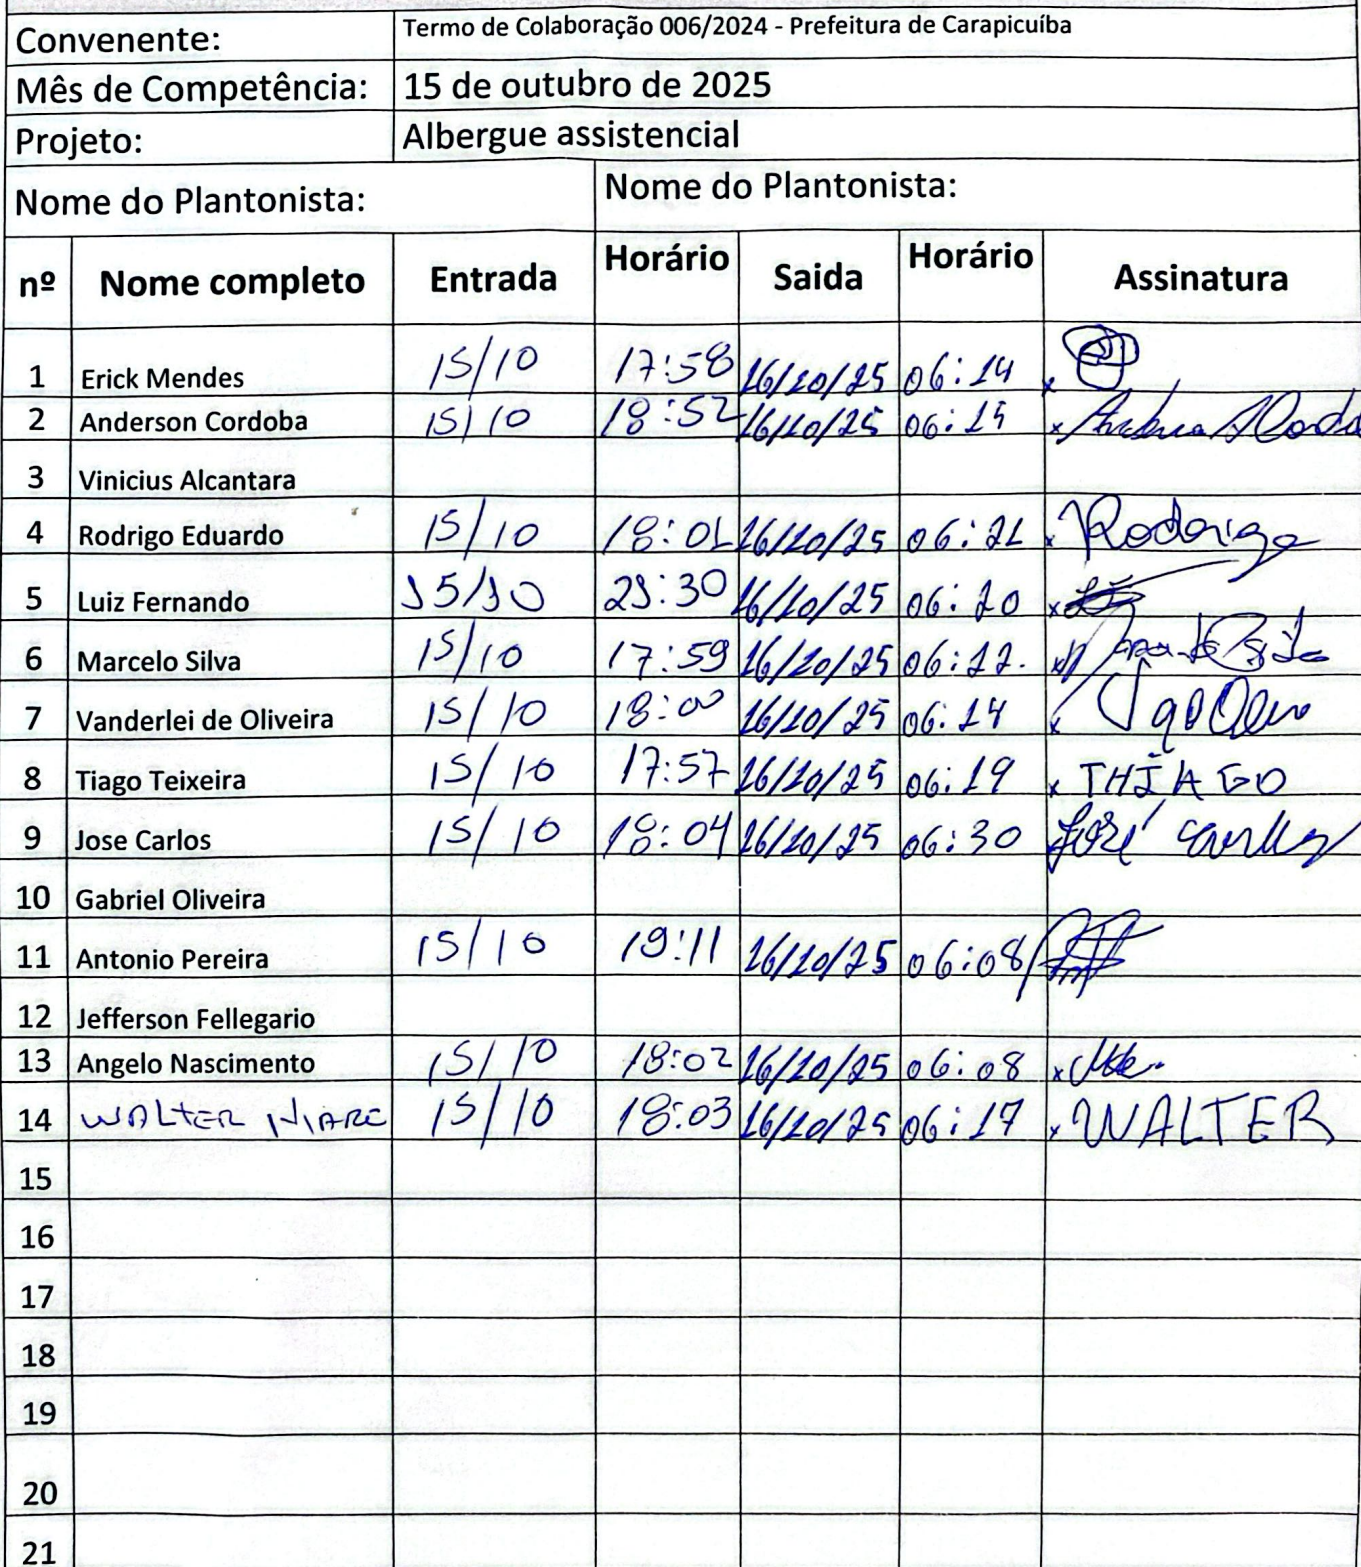 Convenente: Termo de Colaboração 006/2024 - Prefeitura de Carapicuíba
Mês de Competência: 15 de outubro de 2025
Projeto: Albergue assistencial
Nome do Plantonista: Nome do Plantonista:
nº Nome completo Entrada Horário Saida Horário Assinatura
1 Erick Mendes 15/10 17:58 16/10/25 06:14
2 Anderson Cordoba 15/10 18:52 16/10/25 06:15
3 Vinicius Alcantara
4 Rodrigo Eduardo 15/10 18:01 16/10/25 06:21 x Rodrigo
5 Luiz Fernando 15/10 21:30 16/10/25 06:20 x
6 Marcelo Silva 15/10 17:59 16/10/25 06:12. x
7 Vanderlei de Oliveira 15/10 18:00 16/10/25 06:14 x
8 Tiago Teixeira 15/10 17:57 16/10/25 06:19 x THIAGO
9 Jose Carlos 15/10 18:04 16/10/25 06:30 José Carlos
10 Gabriel Oliveira
11 Antonio Pereira 15/10 19:11 16/10/25 06:08
12 Jefferson Fellegario
13 Angelo Nascimento 15/10 18:02 16/10/25 06:08 x
14 WALTER 15/10 18:03 16/10/25 06:17 x WALTER
15
16
17
18
19
20
21